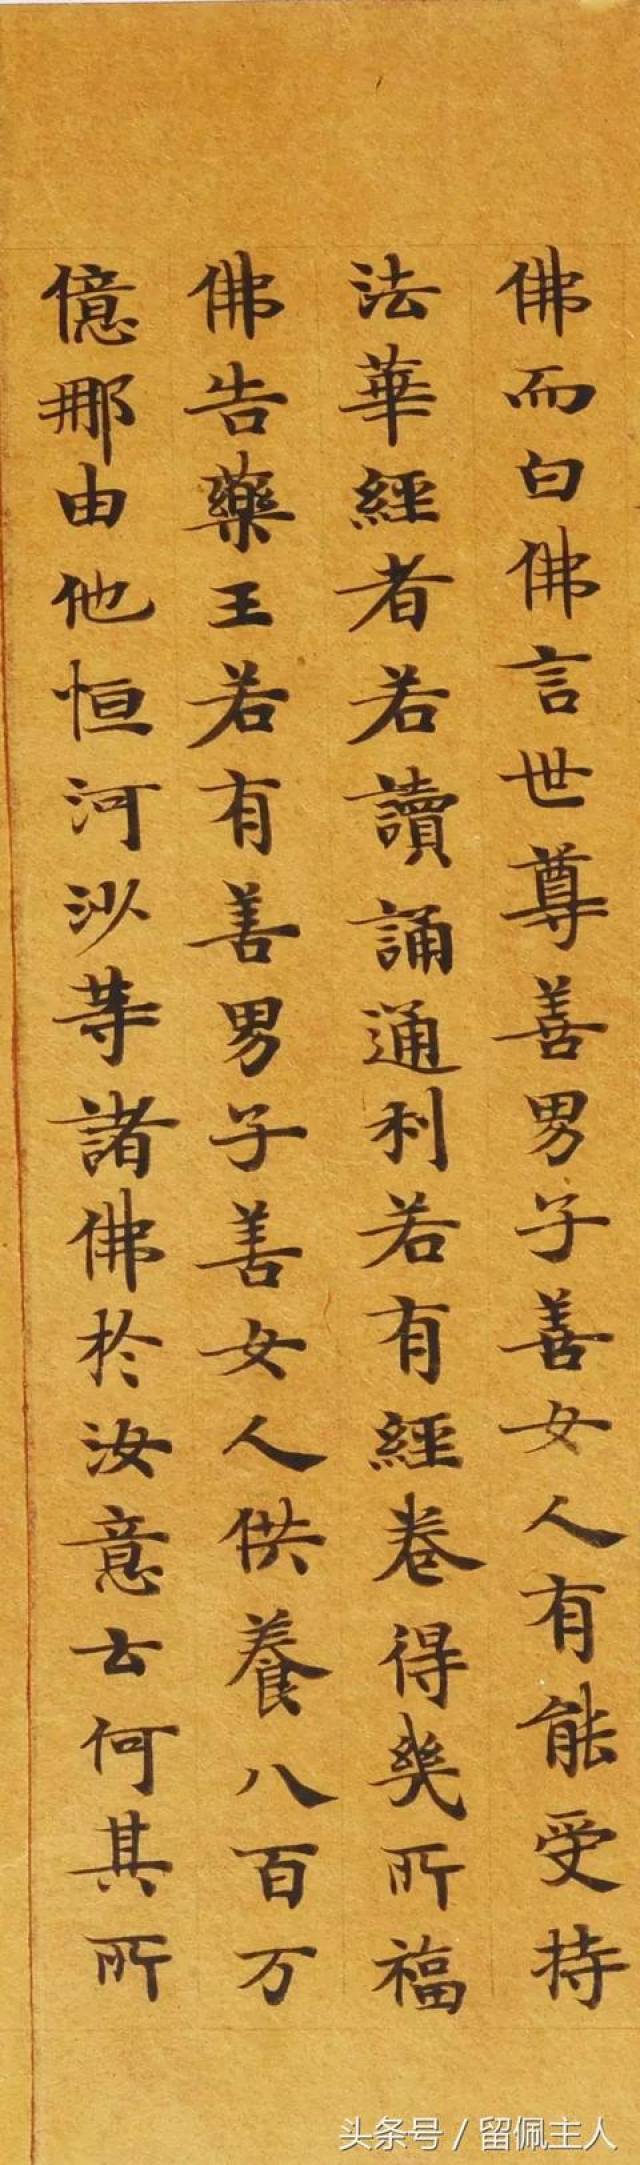 佛而白佛言世尊善男子善女人有能受持
法華經者若讀誦通利若有經卷得幾所福
佛告藥王若有善男子善女人供養八百万
億那由他恒河沙等諸佛於汝意云何其所
头条号 / 留佩主人